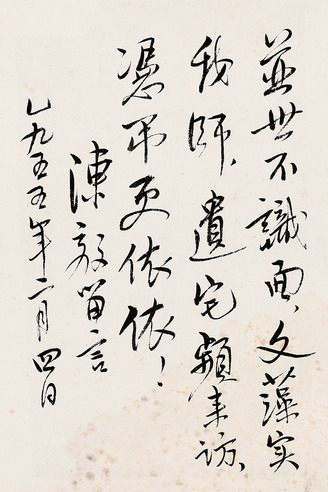 並世不識面,文藻实
我師.遺宅頻来訪、
憑吊更依依!
陳毅留言
一九五五年二月四日